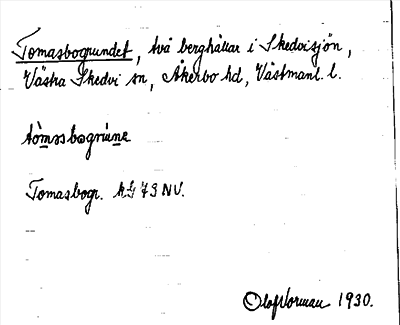 Tomasbogrundet, två berghällar i Skedvisjön,
Västra Skedvi sn, Åkerbo hd, Västmanl. l.
Tomasbogr. kG 73 NV.
Olof Norman 1930.